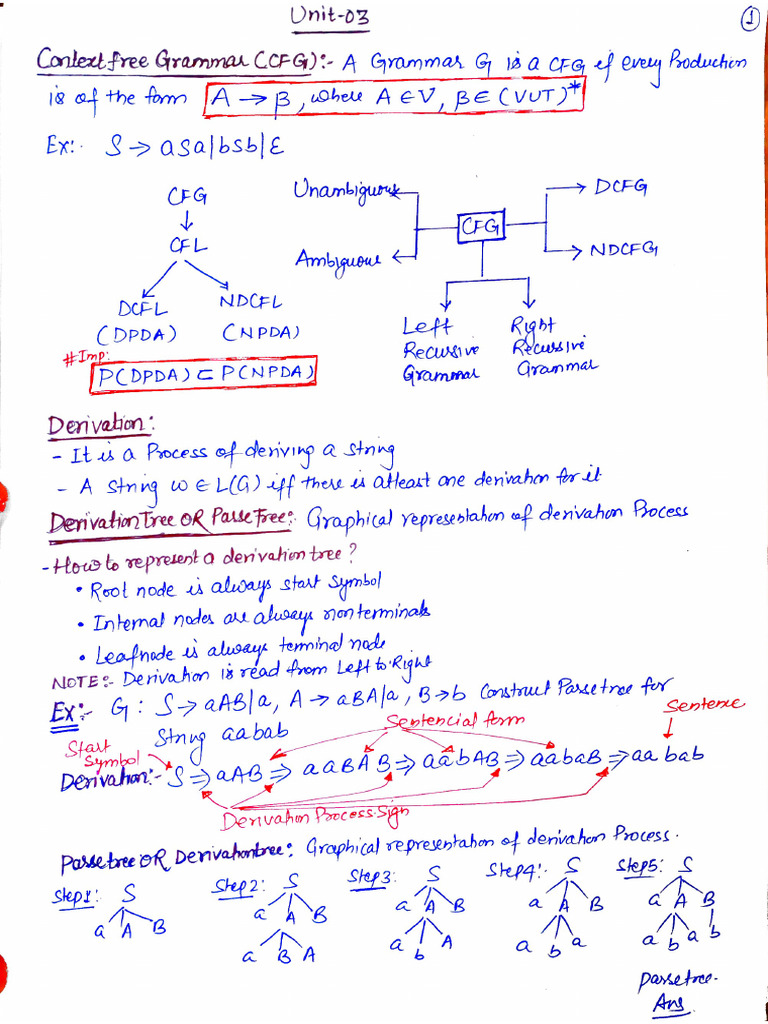 Unit-03
1
Context free Grammar (CFG):- A Grammar G is a CFG if every Production
is of the form A → β, where A ∈ V, β ∈ (VUT)*
Ex:- S → aSa|bSb|ε
CFG
CFL
DCFL NDCFL
(DPDA) (NPDA)
#Imp:
P(DPDA) ⊂ P(NPDA)
Unambiguous
Ambiguous
CFG
DCFG
NDCFG
Left
Recursive
Grammar
Right
Recursive
Grammar
Derivation:
- It is a Process of deriving a string
- A string w ∈ L(G) iff there is atleast one derivation for it
Derivation Tree OR Parse Tree: Graphical representation of derivation Process
- How to represent a derivation tree?
• Root node is always start symbol
• Internal nodes are always nonterminals
• Leafnode is always terminal node
NOTE:- Derivation is read from Left to Right
Ex:- G: S → aAB|a, A → aBA|a, B → b Construct Parsetree for
String aabab
Sentencial form
Sentence
Start
Symbol
Derivation:- S ⇒ aAB ⇒ aaBAB ⇒ aabAB ⇒ aabaB ⇒ aabab
Derivation Process Sign
Parsetree OR Derivationtree: Graphical representation of derivation Process.
Step1: S
a A B
Step2: S
a A B
a B A
Step3: S
a A B
a b A
Step4:- S
a A B
a b a
Step5: S
a A B
a b a b
Parsetree.
Ans